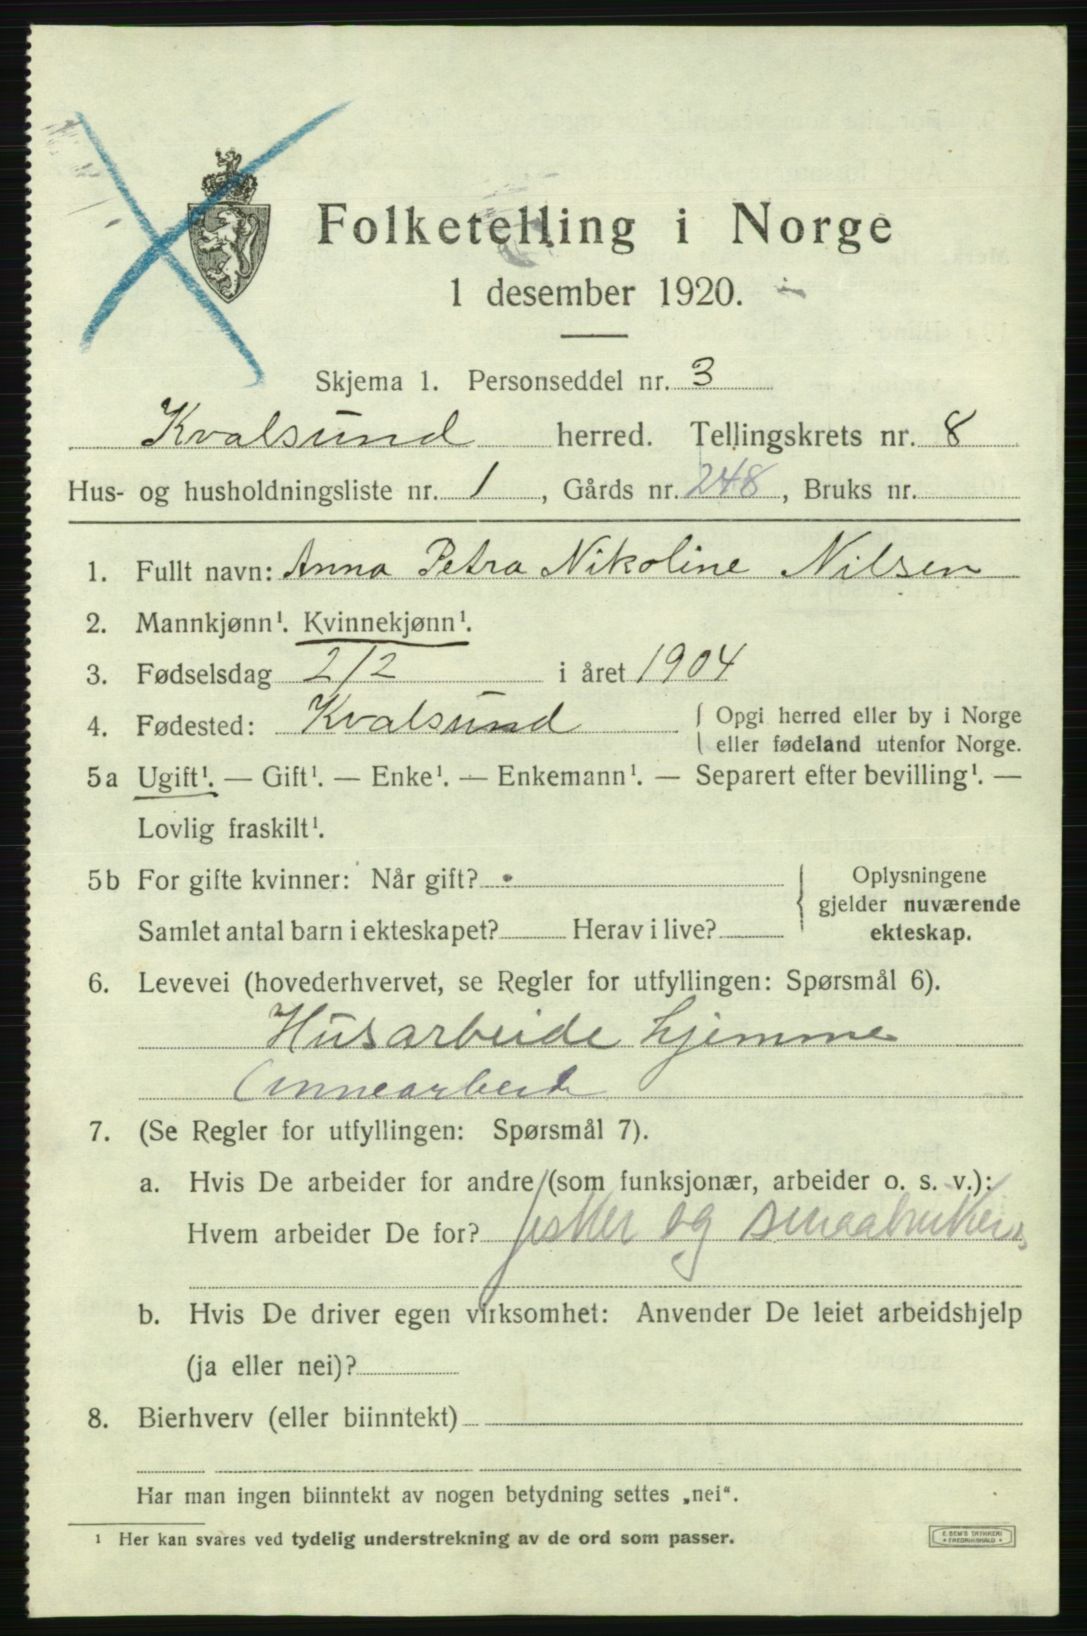 Folketelling i Norge
1 desember 1920.
Skjema 1. Personseddel nr. 3
Kvalsund herred. Tellingskrets nr. 8
Hus- og husholdningsliste nr. 1, Gårds nr. 248, Bruks nr.
1. Fullt navn: Anna Petra Nikoline Nilsen
2. Mannkjønn¹. Kvinnekjønn¹.
3. Fødselsdag 2/2 i året 1904
4. Fødested: Kvalsund { Opgi herred eller by i Norge
eller fødeland utenfor Norge.
5a Ugift¹. — Gift¹. — Enke¹. — Enkemann¹. — Separert efter bevilling¹. —
Lovlig fraskilt¹.
5b For gifte kvinner: Når gift? { Oplysningene
gjelder nuværende
Samlet antal barn i ekteskapet? Herav i live? ekteskap.
6. Levevei (hovederhvervet, se Regler for utfyllingen: Spørsmål 6).
Husarbeide hjemme
(innearbeide
7. (Se Regler for utfyllingen: Spørsmål 7).
a. Hvis De arbeider for andre (som funksjonær, arbeider o. s. v.):
Hvem arbeider De for? fisker og smaabruker
b. Hvis De driver egen virksomhet: Anvender De leiet arbeidshjelp
(ja eller nei)?
8. Bierhverv (eller biinntekt)
Har man ingen biinntekt av nogen betydning settes „nei“.
¹ Her kan svares ved tydelig understrekning av de ord som passer.
E. SEM'S TRYKKERI
FREDRIKSHALD